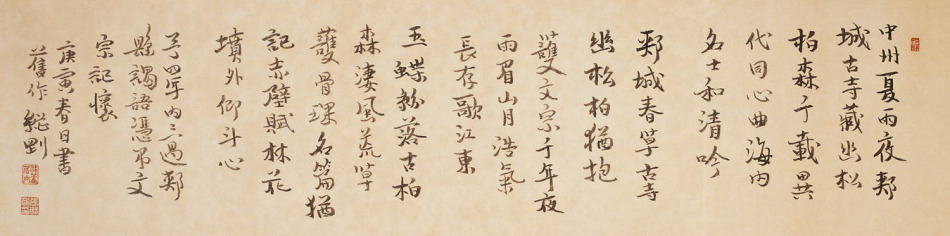 中州夏雨夜郟
城古寺藏幽松
柏森千載異
代同心曲海内
名士和清吟
郟城春草古寺
幽松柏猶抱
護文宗千年夜
雨眉山月浩氣
長存歌江東
玉蝶紛落古柏
森淒風荒草
護骨名篇猶
記赤壁賦林花
墳外仰斗心
予四年内三過郟
縣謁語憑弔文
宗記懷
庚寅春日書
舊作